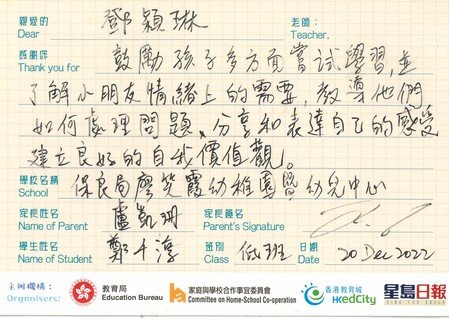 親愛的 鄧穎琳 老師:
Dear Teacher,
感謝您 鼓勵孩子多方面嘗試學習,並
Thank you for
了解小朋友情緒上的需要,教導他們
如何處理問題、分享和表達自己的感受
建立良好的自我價值觀。
學校名稱 保良局廖笑霞幼稚園暨幼兒中心
School
家長姓名 盧凱珊 家長簽名
Name of Parent Parent's Signature
學生姓名 鄭千淳 班別 低班 日期 20 Dec 2022
Name of Student Class Date
主辦機構: 教育局 家庭與學校合作事宜委員會 香港教育城 星島日報
Organisers: Education Bureau Committee on Home-School Co-operation HKedCity